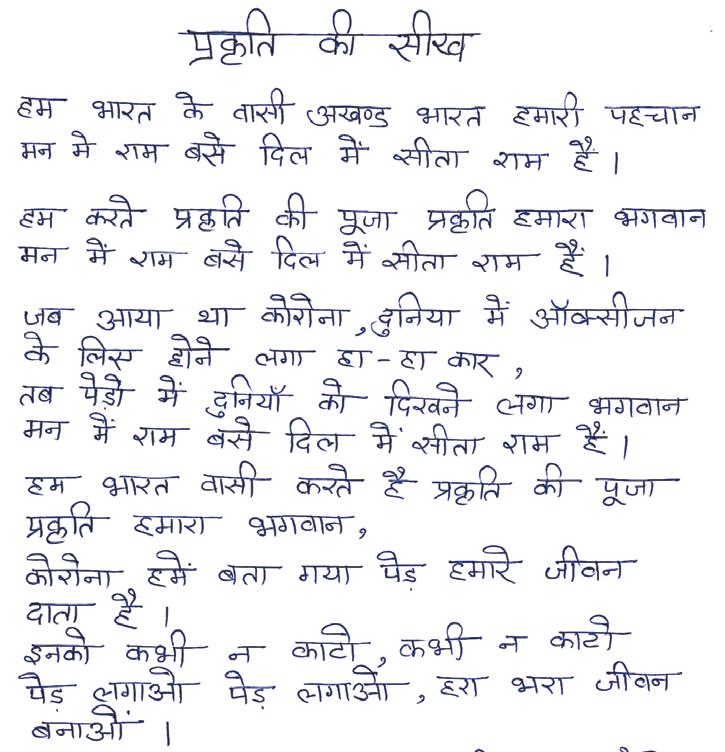 प्रकृति की सीख
हम भारत के वासी अखण्ड भारत हमारी पहचान
मन मे राम बसे दिल में सीता राम है ।
हम करते प्रकृति की पूजा प्रकृति हमारा भगवान
मन में राम बसे दिल में सीता राम हैं ।
जब आया था कोरोना, दुनिया में ऑक्सीजन
के लिए होने लगा हा-हा कार,
तब पेड़ो में दुनियाँ को दिखने लगा भगवान
मन में राम बसे दिल में सीता राम हैं ।
हम भारत वासी करते है प्रकृति की पूजा
प्रकृति हमारा भगवान,
कोरोना हमें बता गया पेड़ हमारे जीवन
दाता है ।
इनको कभी न काटो, कभी न काटो
पेड़ लगाओ पेड़ लगाओ, हरा भरा जीवन
बनाओं ।